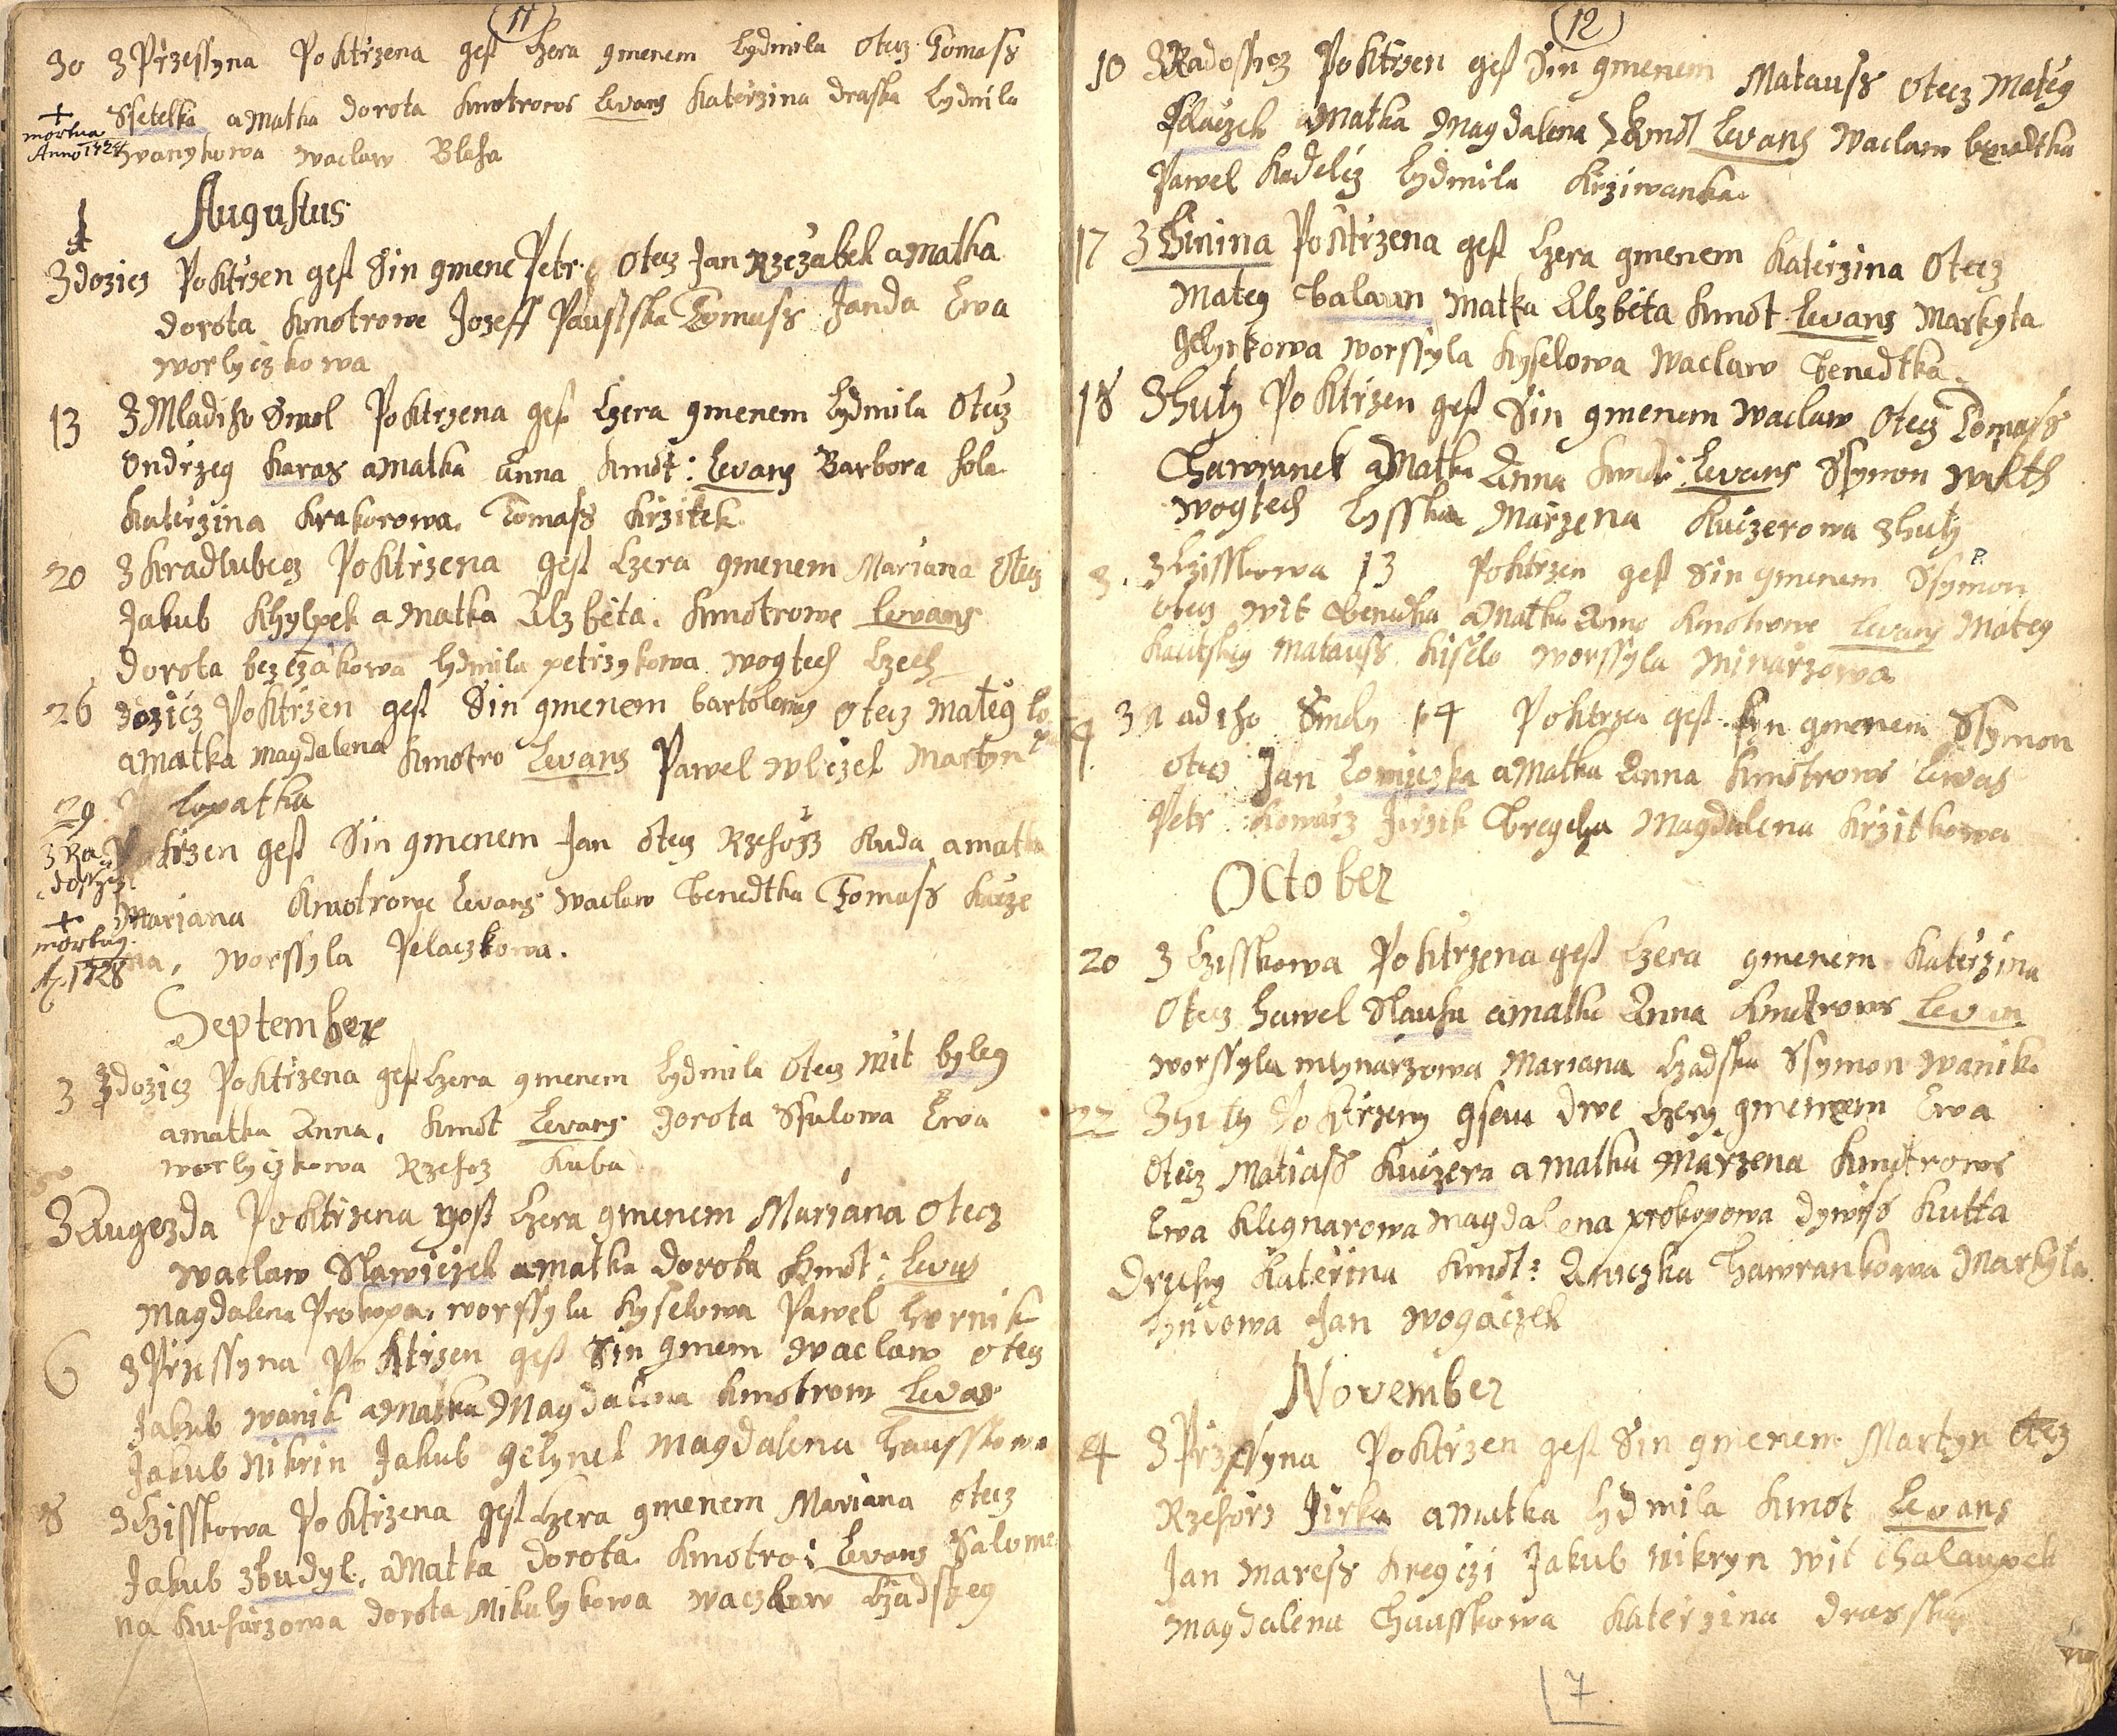 11
30 z Przessyna Poktrzena gest Czera gmenem lydmila Otecz Tomass
Ssetelka a Matka dorota kmotrows levans Katerzina draska lydmila
+
mortua
Anno
wanykowa waclaw Blaha
Augustus
zdozicz Poktrzen gest Sin gmene Petr Otecz Jan Rzezabek a Matka
dorota kmotrowe Jozeff Paustska Tomass Janda Ewa
worlyczkowa
13 z Mladiho Smol Poktrzena gest Czera gmenem lydmila Otecz
Ondrzeg Karas a Matka Anna kmot: levans Barbora hola
Katerzina Krakorowa. Tomass Krzitek
20 z Kradlubcoz Poktrzena gest Czera gmenem Mariana Otecz
Jakub Khylpek a Matka Alzbeta. kmotrowe levans
dorota bezczakowa lydmila petrzykowa wogtech Czech
26 dozicz Poktrzen gest Sin gmenem bartolomeg Otecz Mateg lo
a Matka Magdalena kmotro levans Pawel wlczek Martyn
lopatka
29
z Ra
dossycz
Poktrzen gest Sin gmenem Jan Otecz Rzehorz Kuda a matka
Mariana kmotrowe levans waclaw benedtka Tomass kucze
+
mortuq
A. 1728
na, worssyla Pelaczkowa.
September
3 zdozicz Poktrzena gest Czera gmenem lydmila Otecz wit byleg
a matka Anna, kmot levans dorota Ssulowa Ewa
worlyczkowa Rzehoz Kuba
z Augezda Poktrzena gest Czera gmenem Mariana Otecz
waclaw Slawiczek a matka dorota kmot: levas
Magdalena Prokopa. worssyla kyselowa Pawel hornik
6 z Przessyna Poktrzen gest Sin gmenem waclaw Otecz
Jakub wanik a Matka Magdalena kmotrow levas
Jakub Nikrin Jakub gelynek Magdalena hausskowa
8 z Czisskowa Poktrzena gest Czera gmenem Mariana Otecz
Jakub zbudyl. a Matka dorota. kmotro: levans Salome
na Kuharzowa dorota Mikulykowa waczlaw Czadskeg
12
10 z Radossicz Poktrzen gest Sin gmenem Matauss Otecz Mateg
Pelaczek a Matka Magdalena kmot levans waclaw benedtka
Pawel Kadelicz lydmila Krziwanka.
17 z Chinina Poktrzena gest Czera gmenem Katerzina Otecz
Mateg balaun Matka Alzbeta kmot levans Markyta
gelynkowa worssyla Kyselowa waclaw benedtka.
18 z huty Poktrzen gest Sin gmenem waclaw Otecz Tomass
Chawranek a Matka Anna kmot: levans Ssymon
wogtech lysska Marzena Kuczerowa zhuty
z Czisskowa 13 Poktrzen gest Sin gmenem Ssymon
Otecz wit benedka a Matka Anna kmotrowe levans Mateg
Kautskeg Matauss Kiselo worssyla Minarzowa
z Mladiho Smoly 14 Poktrzen gest syn gmenem Ssymon
Otecz Jan lomiczka a Matka Anna kmotrows levas
Petr Komarz Jirzik bregcha Magdalena Krzitkowa
October
20 z Czisskowa Poktrzena gest Czera gmenem Katerzina
Otecz hawel Slauha a matka Anna kmotrows levan
worssyla mlynarzowa Mariana Czadska Ssymon wanik.
22 z huty Poktrzeny gsau dwe Czery gmenem Ewa
Otecz Matiass Kuczera a matka Marzena kmotrows
Ewa Klegnarowa Magdalena prokopowa dywiss Kutta
Druhy Katerina kmot: Aniczka Chawrankowa Markyta
Jan wogaczek
November
4 z Przessyna Poktrzen gest Sin gmenem Martyn Otecz
Rzehorz Jirka a matka lydmila kmot levans
Jan Maress Kregczi Jakub Nikryn wit Chalaupek
Magdalena Chausskowa Katerzina Drasska
7